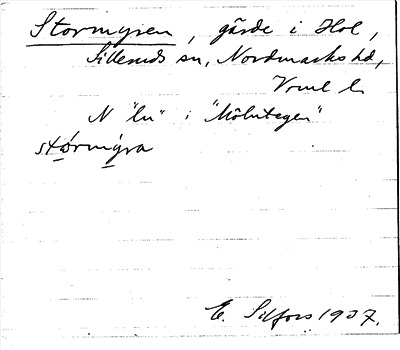 Stormyren, gärde i Hol,
Silleruds sn, Nordmarks hd,
Vrml l.
N "lu" i "Mölntegen"
stórmýra
E. Silfors 1937.